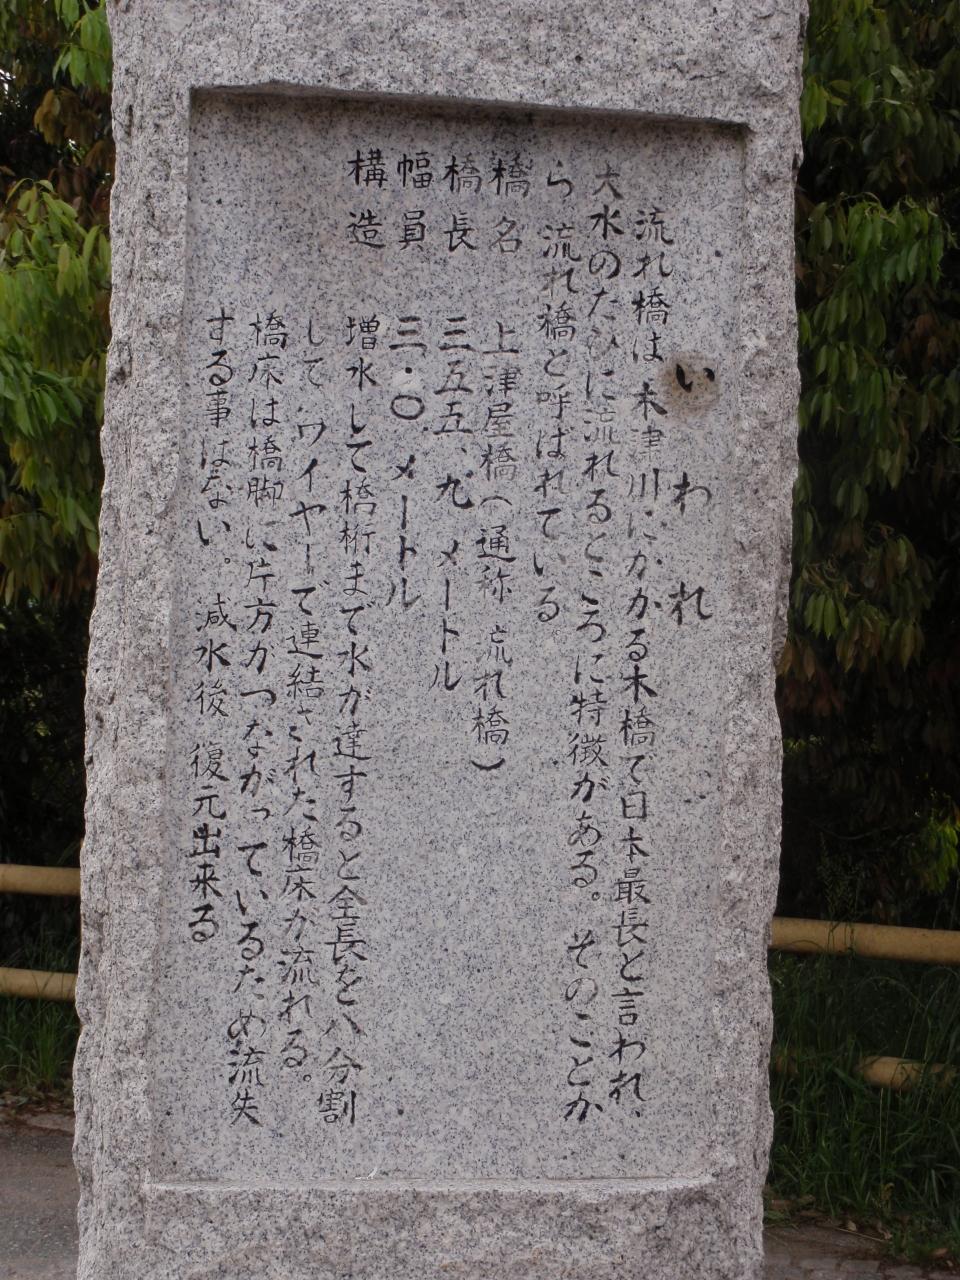 いわれ
流れ橋は木津川にかかる木橋で日本最長と言われ、
大水のたびに流れるところに特徴がある。そのことか
ら流れ橋と呼ばれている
橋名 上津屋橋(通称 流れ橋)
橋長 三五五、九メートル
幅員 三・〇メートル
構造 増水して橋桁まで水が達すると全長を八分割
して ワイヤーで連結された橋床が流れる。
橋床は橋脚に片方がつながっているため流失
する事はない。減水後 復元出来る